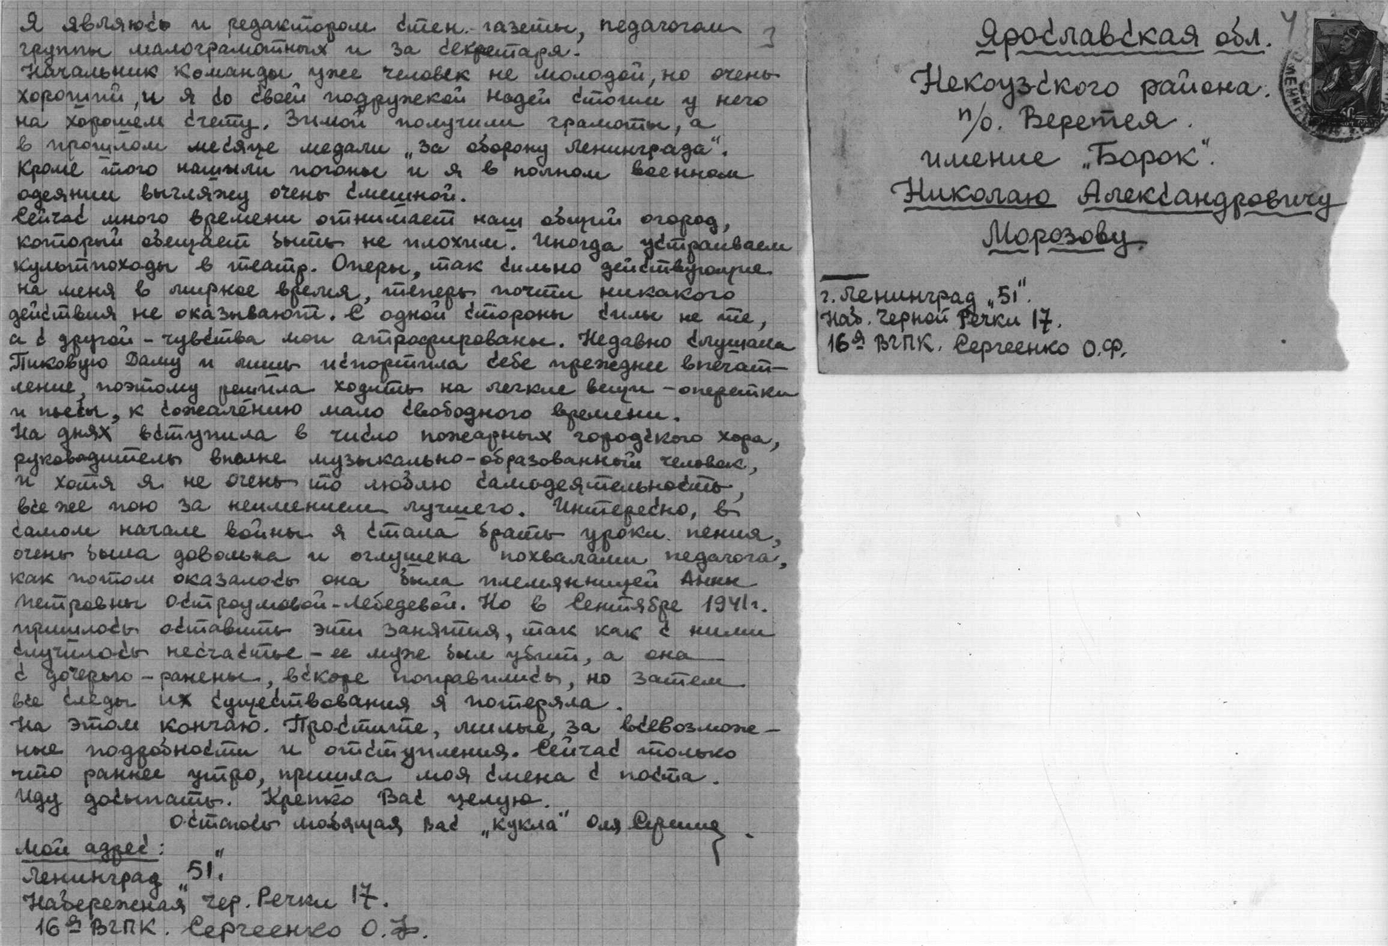 Я являюсь и редактором стен. газеты, педагогом
группы малограмотных и за секретаря.
Начальник команды уже человек не молодой, но очень
хороший, и я со своей подружкой Надей стоим у него
на хорошем счету. Зимой получили грамоты, а
в прошлом месяце медали „За оборону Ленинграда".
Кроме того нашили погоны и я в полном военном
одеянии выгляжу очень смешной.
Сейчас много времени отнимает наш общий огород,
который обещает быть не плохим. Иногда устраиваем
культпоходы в театр. Оперы, так сильно действующие
на меня в мирное время, теперь почти никакого
действия не оказывают. С одной стороны силы не те,
а с другой – чувства мои атрофированы. Недавно слушала
Пиковую Даму и лишь испортила себе прежнее впечат-
ление, поэтому решила ходить на легкие вещи – оперетки
и пьесы, к сожалению мало свободного времени.
На днях вступила в число пожарных городского хора,
руководитель вполне музыкально-образованный человек,
и хотя я не очень то люблю самодеятельность,
все же пою за неимением лучшего. Интересно, в
самом начале войны я стала брать уроки пения,
очень была довольна и оглушена похвалами педагога,
как потом оказалось она была племянницей Анны
Петровны Остроумовой-Лебедевой. Но в Сентябре 1941г.
пришлось оставить эти занятия, так как с ними
случилось несчастье – ее муж был убит, а она
с дочерью – ранены, вскоре поправились, но затем
все следы их существования я потеряла.
На этом кончаю. Простите, милые, за всевозмож-
ные подробности и отступления. Сейчас только
что раннее утро, пришла моя смена с поста.
Иду досыпать. Крепко Вас целую.
Остаюсь любящая Вас „кукла" Оля
Мой адрес:
Ленинград „51".
Набережная Чер. Речки 17.
16й ВГПК. Сергеенко О.Ф.
3
4
Ярославская обл.
Некоузского района.
п/о. Веретея.
имение „Борок".
Николаю Александровичу
Морозову.
г. Ленинград „51".
Наб. Черной Речки 17.
16й ВГПК. Сергеенко О.Ф.